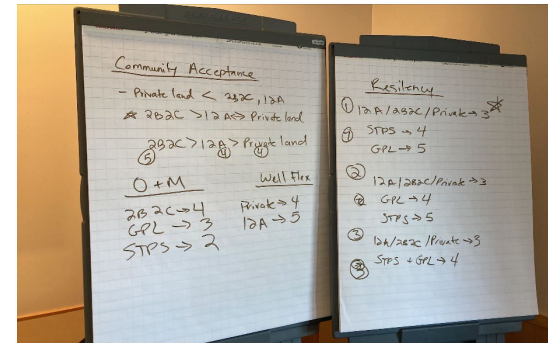 Community Acceptance
- Private land < 2B2C, 12A
☆ 2B2C > 12A <=> Private land
2B2C > 12A > Private land
⑤ ④ ④
O + M
2B 2C → 4
GPL → 3
STPS → 2
Well Flex
Private → 4
12A → 5
Resiliency
① 12A / 2B2C / Private → 3 ☆
STPS → 4
GPL → 5
②
12A / 2B2C / Private → 3
GPL → 4
STPS → 5
③ 12A / 2B2C / Private → 3
STPS + GPL → 4